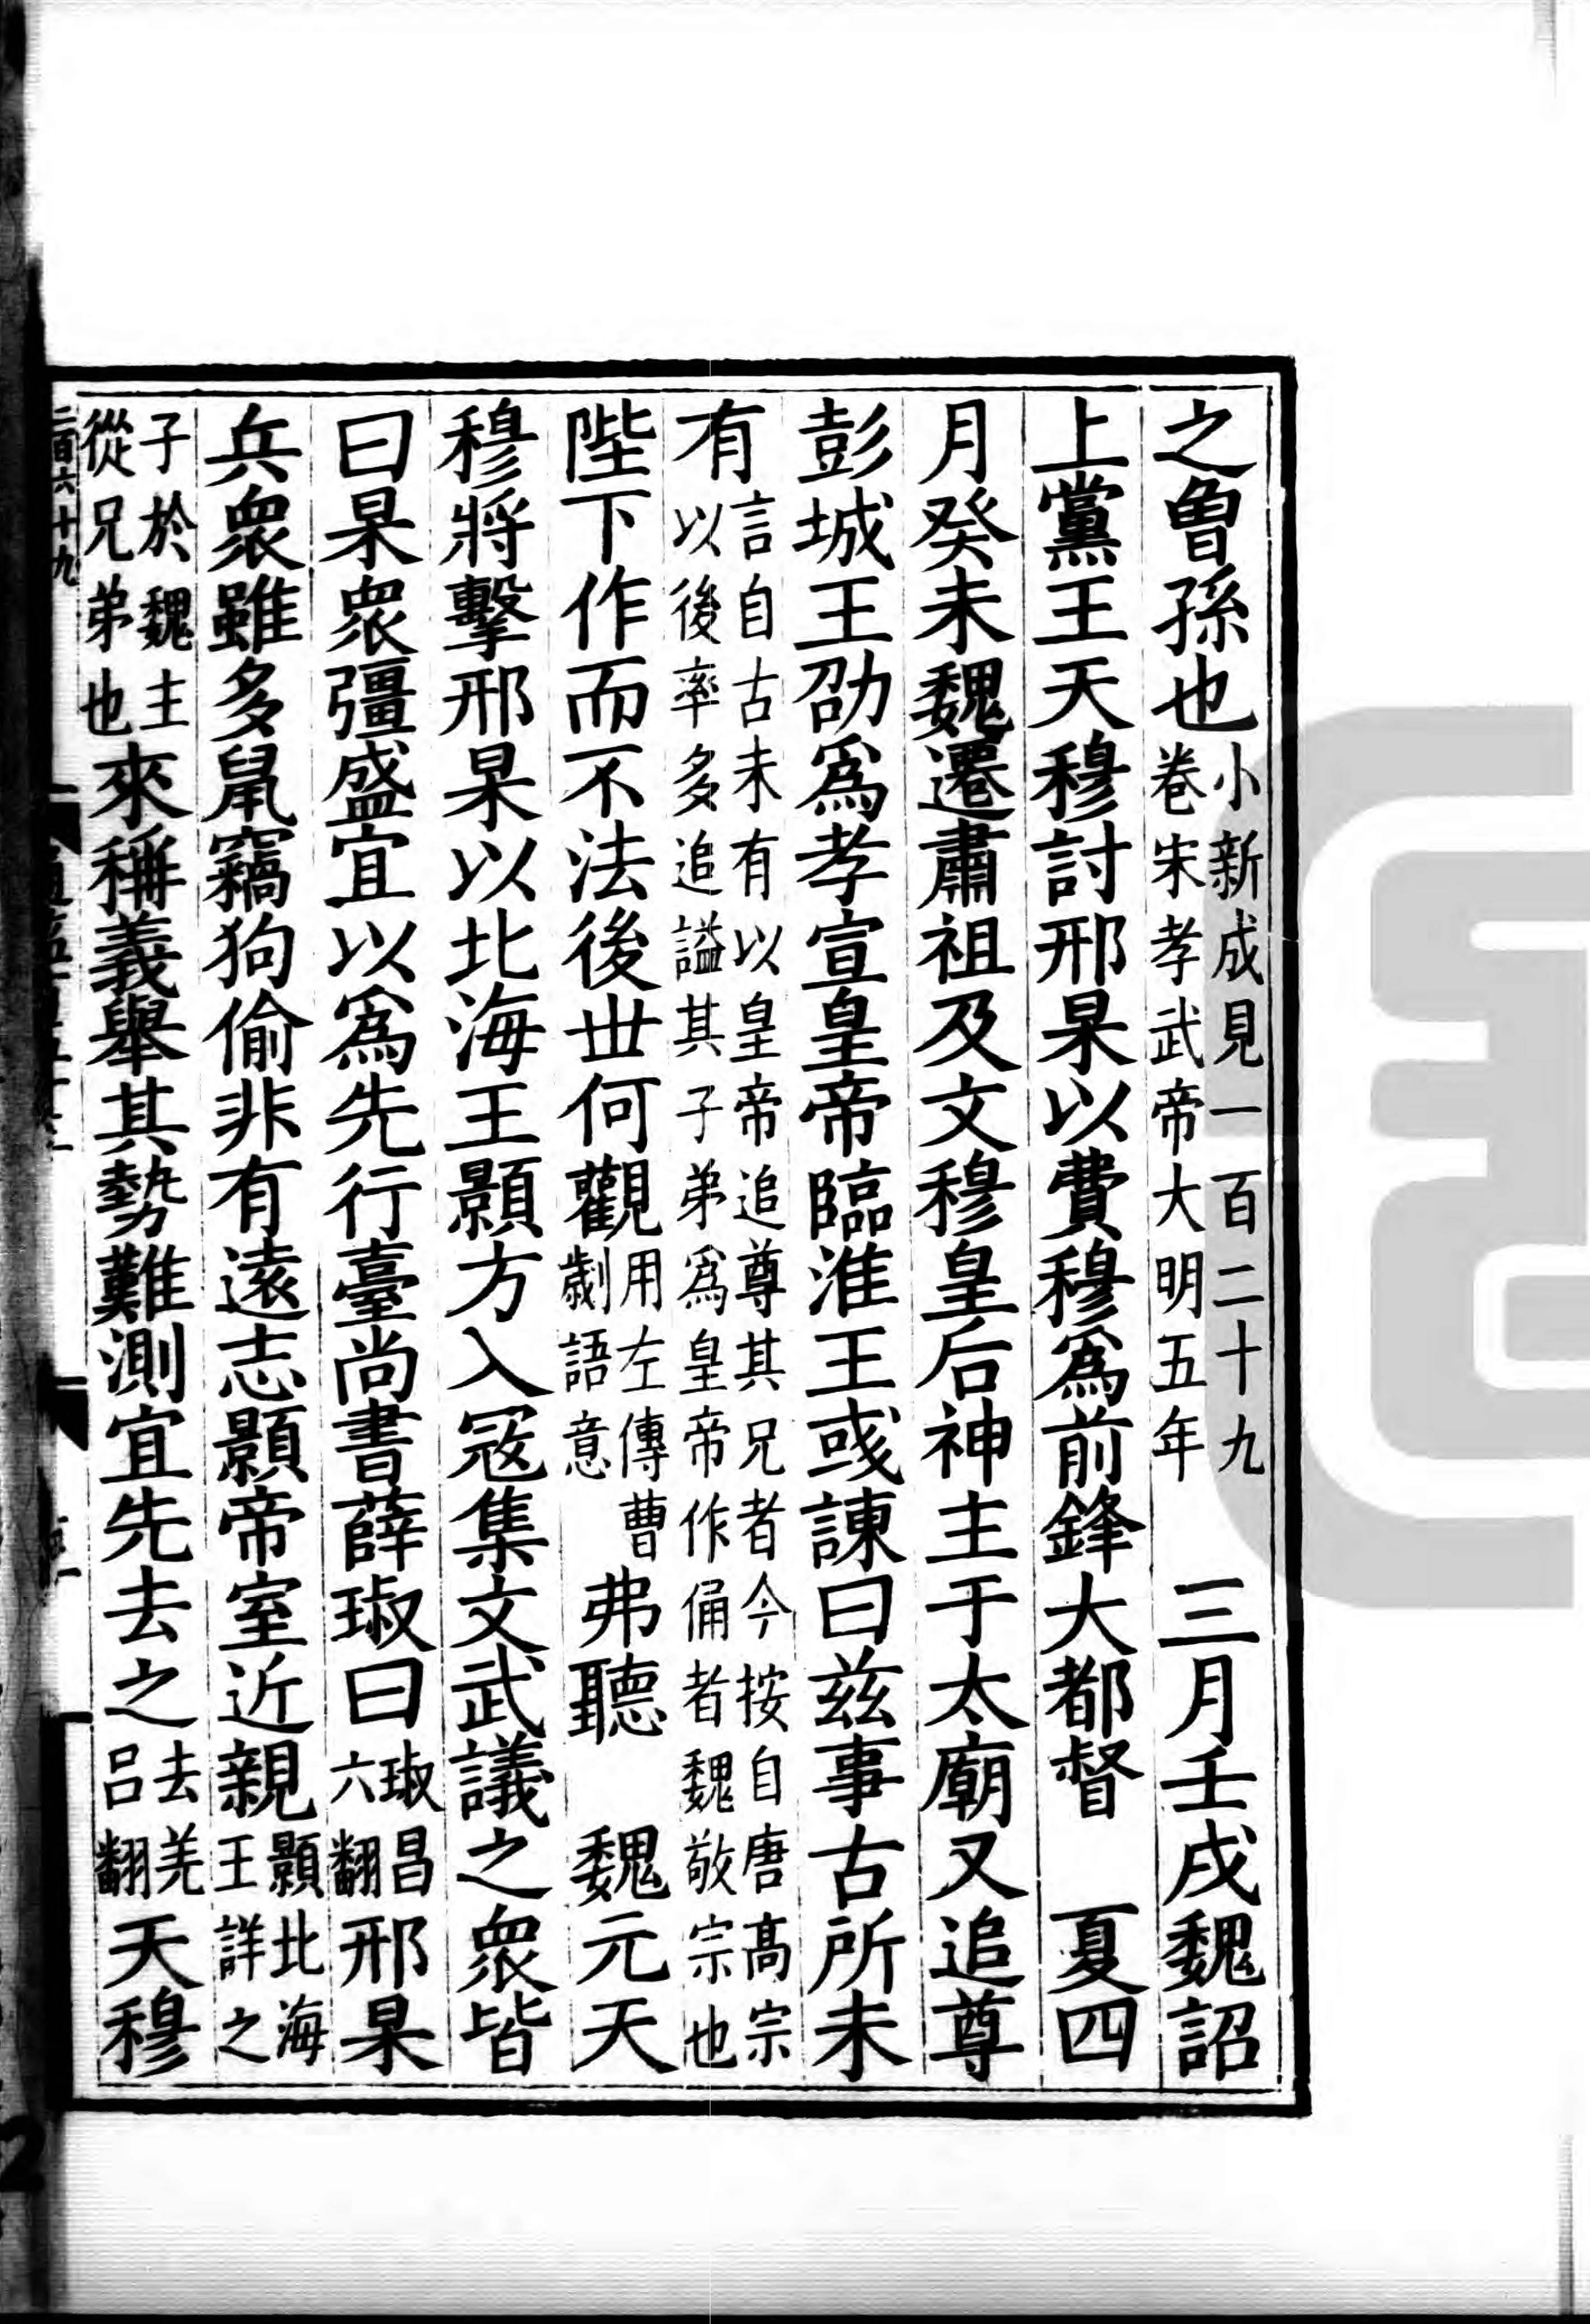 之曾孫也小新成見一百二十九卷宋孝武帝大明五年 三月壬戌魏詔
上黨王天穆討邢杲以費穆爲前鋒大都督 夏四
月癸未魏遷肅祖及文穆皇后神主于太廟又追尊
彭城王劭爲孝宣皇帝臨淮王彧諫曰兹事古所未
有言自古未有以皇帝追尊其兄者今按自唐高宗以後率多追謚其子弟爲皇帝作俑者魏敬宗也
陛下作而不法後世何觀用左傳曹劌語意弗聽 魏元天
穆將擊邢杲以北海王顥方入寇集文武議之衆皆
曰杲衆彊盛宜以爲先行臺尚書薛琡曰琡昌六翻邢杲
兵衆雖多鼠竊狗偷非有遠志顥帝室近親顥北海王詳之
子於魏主從兄弟也來稱義舉其勢難測宜先去之去羌吕翻天穆
二百六十九